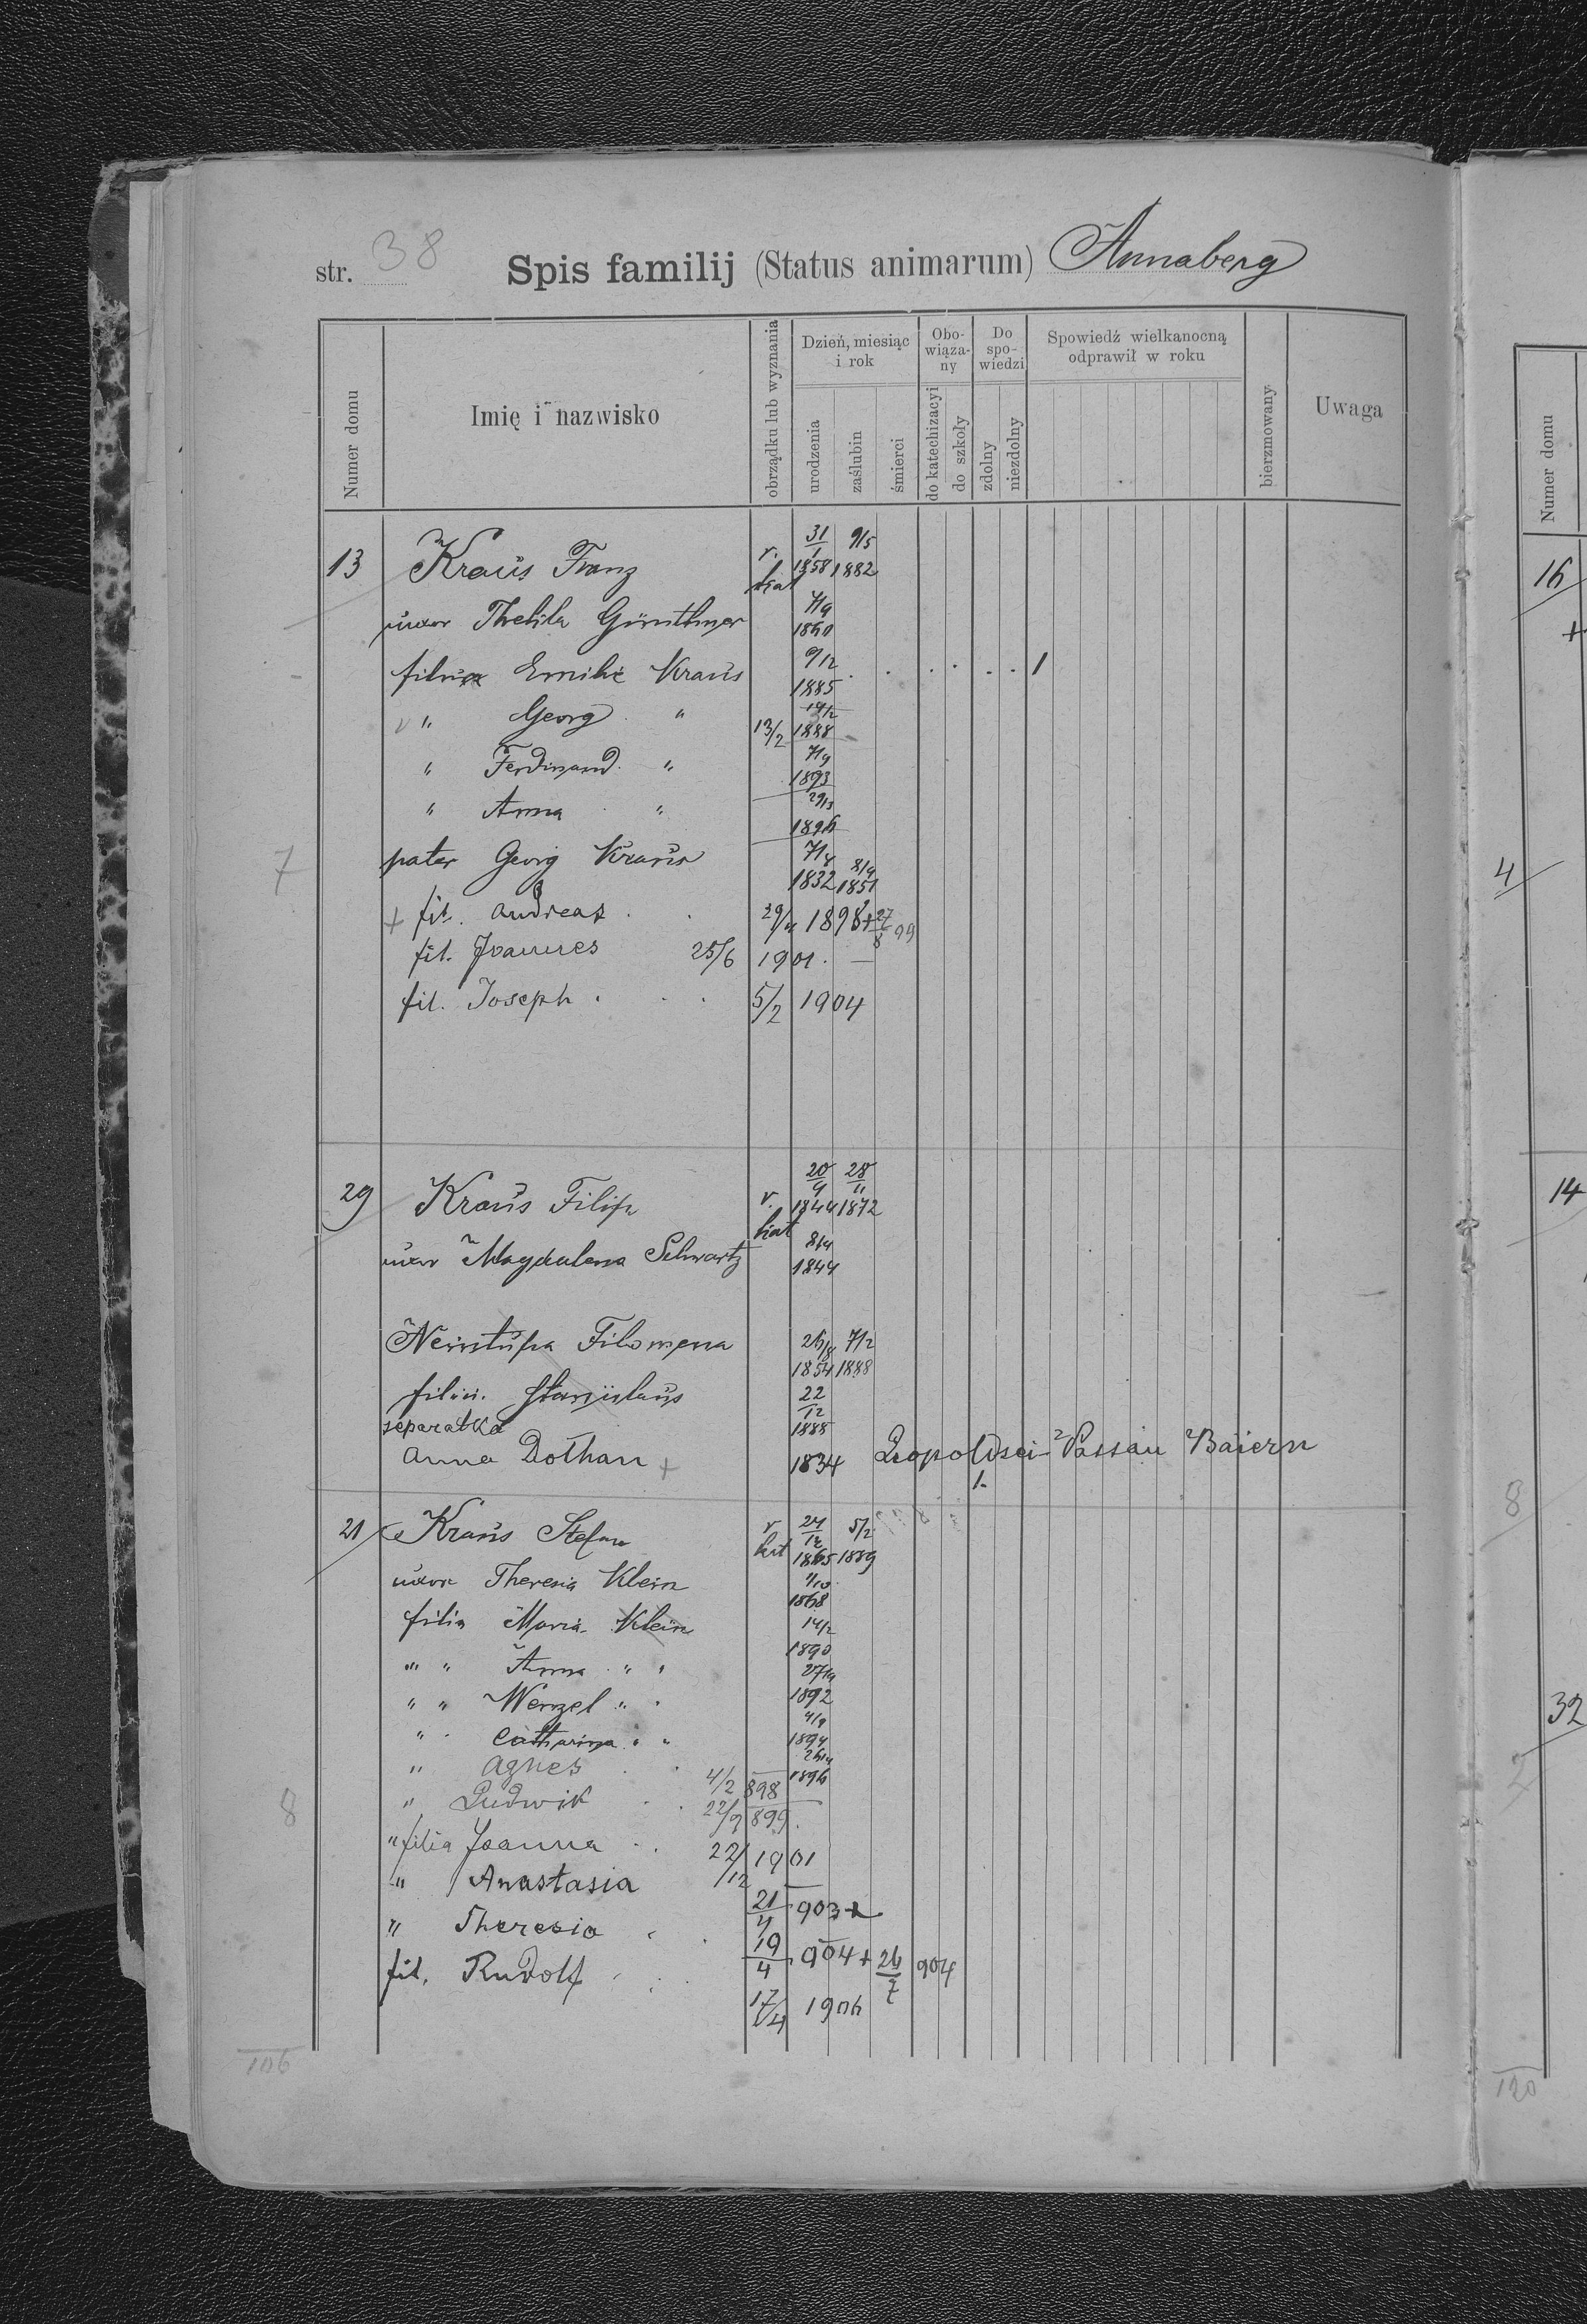 str. 38 Spis familij (Status animarum) Annaberg
Numer domu
Imię i nazwisko
obrządku lub wyznania
Dzień, miesiąc i rok
urodzenia
zaślubin
śmierci
Obo-wiąza-ny
do katechizacyi
do szkoły
Do spo-wiedzi
zdolny
niezdolny
Spowiedź wielkanocną odprawił w roku
bierzmowany
Uwaga
13 Kraus Franz r. kat 31/1 1858 9/5 1882
uxor Günthner 1860
Emilie Kraus 9/12 1885 1
" Georg " 13/2 1888
" Ferdinand " 7/9 1893
" Anna " 29/3 1896
7 pater Georg Kraus 7/4 1832 1851
+ fil. Andreas 29/11 1898 + 27/8 99
fil. Joannes 25/6 1901
fil. Joseph 5/2 1904
29 Kraus Filip r. kat 20/9 1844 28/11 1872
uxor Magdalena Schwartz 8/4 1844
Filomena 26/8 1854 7/2 1888
Stanislaus 22/12 1888
separatka
Anna Dothan + 1834 Passau Baiern
1.
21 Kraus Stefan r kat 24/12 1865 5/2 1889
uxor Theresia Klein 1868
filia Maria Klein 14/2 1890
" " Anna " " 1892
" " Wenzel " " 4/9 1894
" Catharina " "
" Agnes 4/2 898 1896
8 " Ludwik 22/9 899
" filia Joanna 22/12 1901
" Anastasia 21/4 903
" Theresia 19/4 904 + 26/7 904
fil. Rudolf 17/4 1906
106
16
+
4
14
8
32
2
120
Numer domu